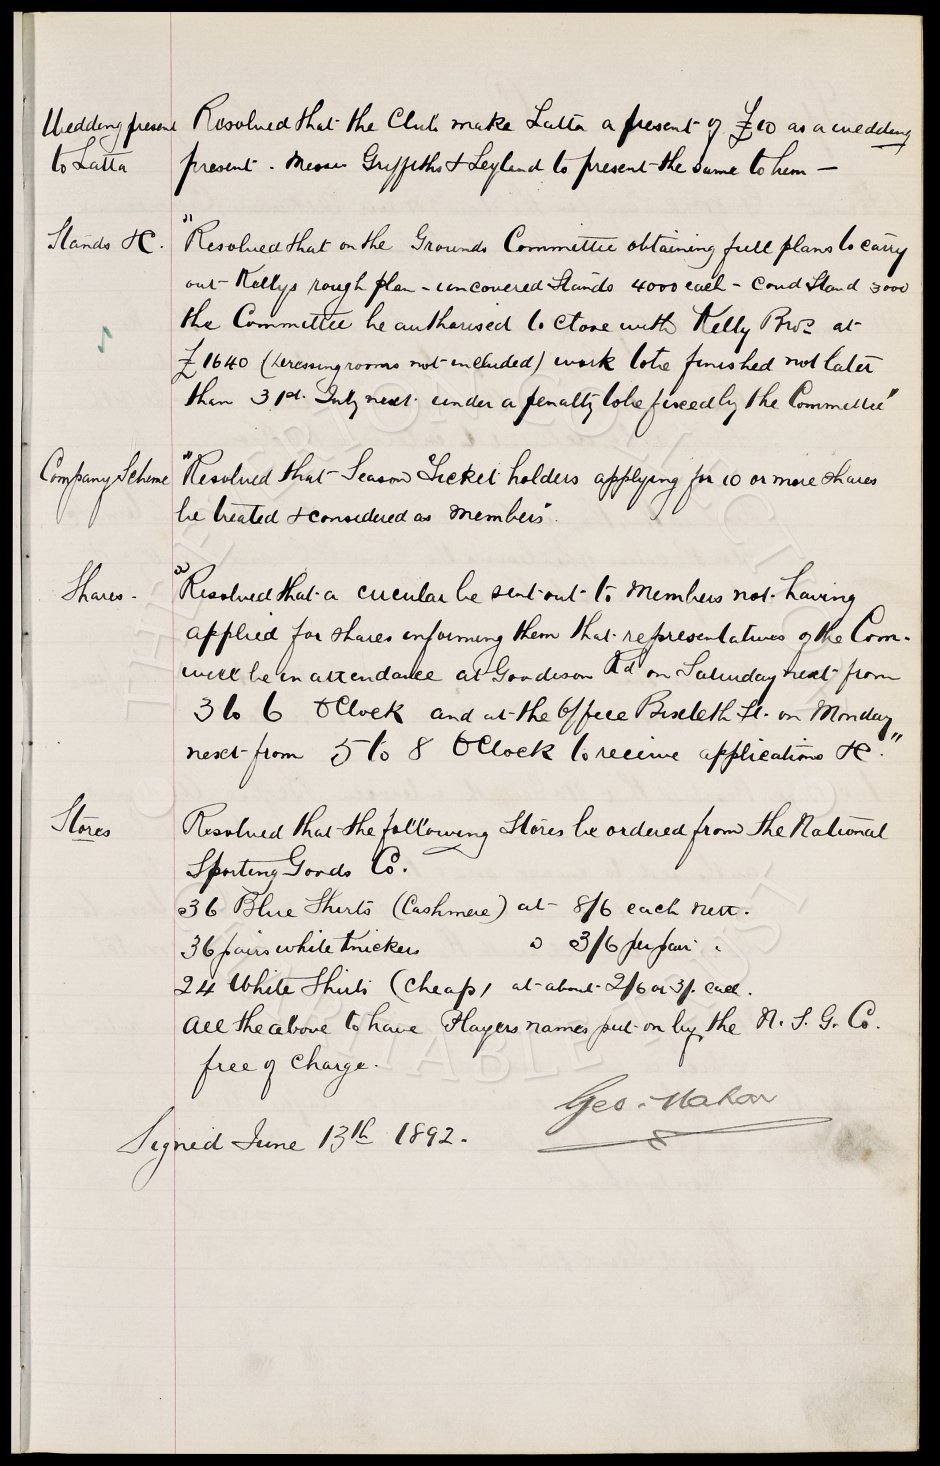 Wedding present Resolved that the Club make Latta a present of £10 as a wedding
to Latta present. Messrs Griffiths & Leyland to present the same to him —
Stands &c. "Resolved that on the Grounds Committee obtaining full plans to carry
out Kellys rough plan - uncovered Stands 4000 each - Covd Stand 3000
the Committee be authorised to close with Kelly Bros at
£1640 (dressing rooms not included) work to be finished not later
than 31st July next under a penalty to be fixed by the Committee"
Company Scheme "Resolved that Season Ticket holders applying for 10 or more shares
be treated & considered as Members".
Shares - "Resolved that a circular be sent out to Members not having
applied for shares informing them that representatives of the Com.
will be in attendance at Goodison Rd on Saturday next from
3 to 6 OClock and at the Office Bixteth St. on Monday
next from 5 to 8 OClock to receive applications &c."
Stores Resolved that the following Stores be ordered from the National
Sporting Goods Co.
36 Blue Shirts (Cashmere) at 8/6 each nett.
36 pairs white knickers " 3/6 per pair "
24 White Shirts (cheap) at about 2/6 or 3/- each.
All the above to have Players names put on by the N. S. G. Co.
free of charge.
Geo. Mahon
Signed June 13th 1892.
THE EVERTON COLLECTION
CHARITABLE TRUST